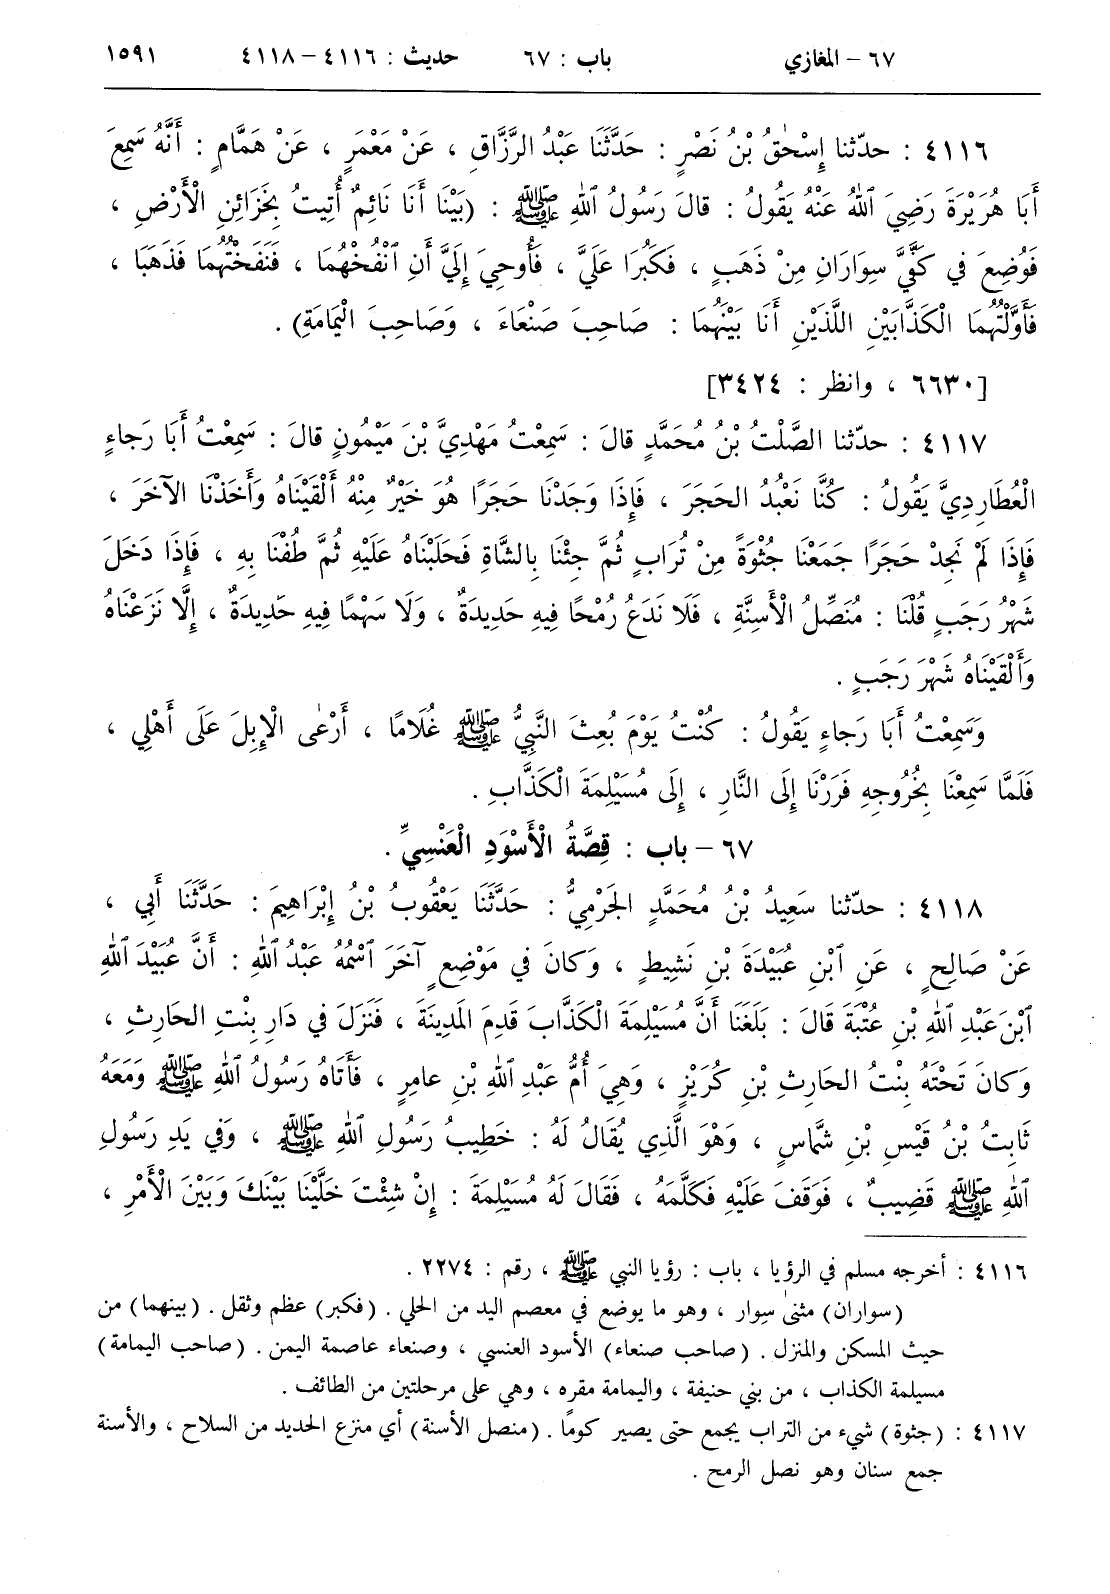 ٦٧ – المغازي باب : ٦٧ حديث : ٤١١٦ – ٤١١٨ ١٥٩١
٤١١٦ : حدّثنا إِسْحٰقُ بْنُ نَصْرٍ : حَدَّثَنَا عَبْدُ الرَّزَّاقِ ، عَنْ مَعْمَرٍ ، عَنْ هَمَّامٍ : أَنَّهُ سَمِعَ
أَبَا هُرَيْرَةَ رَضِيَ ٱللّٰهُ عَنْهُ يَقُولُ : قالَ رَسُولُ ٱللّٰهِ ﷺ : (بَيْنَا أَنَا نَائِمٌ أُتِيتُ بِخَزَائِنِ الْأَرْضِ ،
فَوُضِعَ في كَفَّيَّ سِوَارَانِ مِنْ ذَهَبٍ ، فَكَبُرَا عَلَيَّ ، فَأُوحِيَ إِلَيَّ أَنِ ٱنْفُخْهُمَا ، فَنَفَخْتُهُمَا فَذَهَبَا ،
فَأَوَّلْتُهُمَا الْكَذَّابَيْنِ اللَّذَيْنِ أَنَا بَيْنَهُمَا : صَاحِبَ صَنْعَاءَ ، وَصَاحِبَ الْيَمَامَةِ) .
[٦٦٣٠ ، وانظر : ٣٤٢٤]
٤١١٧ : حدّثنا الصَّلْتُ بْنُ مُحَمَّدٍ قالَ : سَمِعْتُ مَهْدِيَّ بْنَ مَيْمُونٍ قالَ : سَمِعْتُ أَبَا رَجاءٍ
الْعُطَارِدِيَّ يَقُولُ : كُنَّا نَعْبُدُ الحَجَرَ ، فَإِذَا وَجَدْنَا حَجَرًا هُوَ خَيْرٌ مِنْهُ أَلْقَيْنَاهُ وَأَخَذْنَا الآخَرَ ،
فَإِذَا لَمْ نَجِدْ حَجَرًا جَمَعْنَا جُثْوَةً مِنْ تُرَابٍ ثُمَّ جِئْنَا بِالشَّاةِ فَحَلَبْنَاهُ عَلَيْهِ ثُمَّ طُفْنَا بِهِ ، فَإِذَا دَخَلَ
شَهْرُ رَجَبٍ قُلْنَا : مُنَصِّلُ الْأَسِنَّةِ ، فَلَا نَدَعُ رُمْحًا فِيهِ حَدِيدَةٌ ، وَلَا سَهْمًا فِيهِ حَدِيدَةٌ ، إِلَّا نَزَعْنَاهُ
وَأَلْقَيْنَاهُ شَهْرَ رَجَبٍ .
وَسَمِعْتُ أَبَا رَجاءٍ يَقُولُ : كُنْتُ يَوْمَ بُعِثَ النَّبِيُّ ﷺ غُلَامًا ، أَرْعٰى الْإِبِلَ عَلَى أَهْلِي ،
فَلَمَّا سَمِعْنَا بِخُرُوجِهِ فَرَرْنَا إِلَى النَّارِ ، إِلَى مُسَيْلِمَةَ الْكَذَّابِ .
٦٧ – باب : قِصَّةُ الْأَسْوَدِ الْعَنْسِيِّ .
٤١١٨ : حدّثنا سَعِيدُ بْنُ مُحَمَّدٍ الجَرْمِيُّ : حَدَّثَنَا يَعْقُوبُ بْنُ إِبْرَاهِيمَ : حَدَّثَنَا أَبِي ،
عَنْ صَالِحٍ ، عَنِ ٱبْنِ عُبَيْدَةَ بْنِ نَشِيطٍ ، وَكانَ في مَوْضِعٍ آخَرَ ٱسْمُهُ عَبْدُ ٱللّٰهِ : أَنَّ عُبَيْدَ ٱللّٰهِ
ٱبْنَ عَبْدِ ٱللّٰهِ بْنِ عُتْبَةَ قالَ : بَلَغَنَا أَنَّ مُسَيْلِمَةَ الْكَذَّابَ قَدِمَ المَدِينَةَ ، فَنَزَلَ في دَارِ بِنْتِ الحَارِثِ ،
وَكانَ تَحْتَهُ بِنْتُ الحَارِثِ بْنِ كُرَيْزٍ ، وَهِيَ أُمُّ عَبْدِ ٱللّٰهِ بْنِ عامِرٍ ، فَأَتَاهُ رَسُولُ ٱللّٰهِ ﷺ وَمَعَهُ
ثَابِتُ بْنُ قَيْسِ بْنِ شَمَّاسٍ ، وَهُوَ الَّذِي يُقَالُ لَهُ : خَطِيبُ رَسُولِ ٱللّٰهِ ﷺ ، وَفي يَدِ رَسُولِ
ٱللّٰهِ ﷺ قَضِيبٌ ، فَوَقَفَ عَلَيْهِ فَكَلَّمَهُ ، فَقَالَ لَهُ مُسَيْلِمَةَ : إِنْ شِئْتَ خَلَّيْنَا بَيْنَكَ وَبَيْنَ الْأَمْرِ ،
٤١١٦ : أخرجه مسلم في الرؤيا ، باب : رؤيا النبي ﷺ ، رقم : ٢٢٧٤ .
(سواران) مثنىٰ سِوار ، وهو ما يوضع في معصم اليد من الحلي . (فكبر) عظم وثقل . (بينهما) من
حيث المسكن والمنزل . (صاحب صنعاء) الأسود العنسي ، وصنعاء عاصمة اليمن . (صاحب اليمامة)
مسيلمة الكذاب ، من بني حنيفة ، واليمامة مقره ، وهي على مرحلتين من الطائف .
٤١١٧ : (جثوة) شيء من التراب يجمع حتى يصير كومًا . (منصل الأسنة) أي منزع الحديد من السلاح ، والأسنة
جمع سنان وهو نصل الرمح .